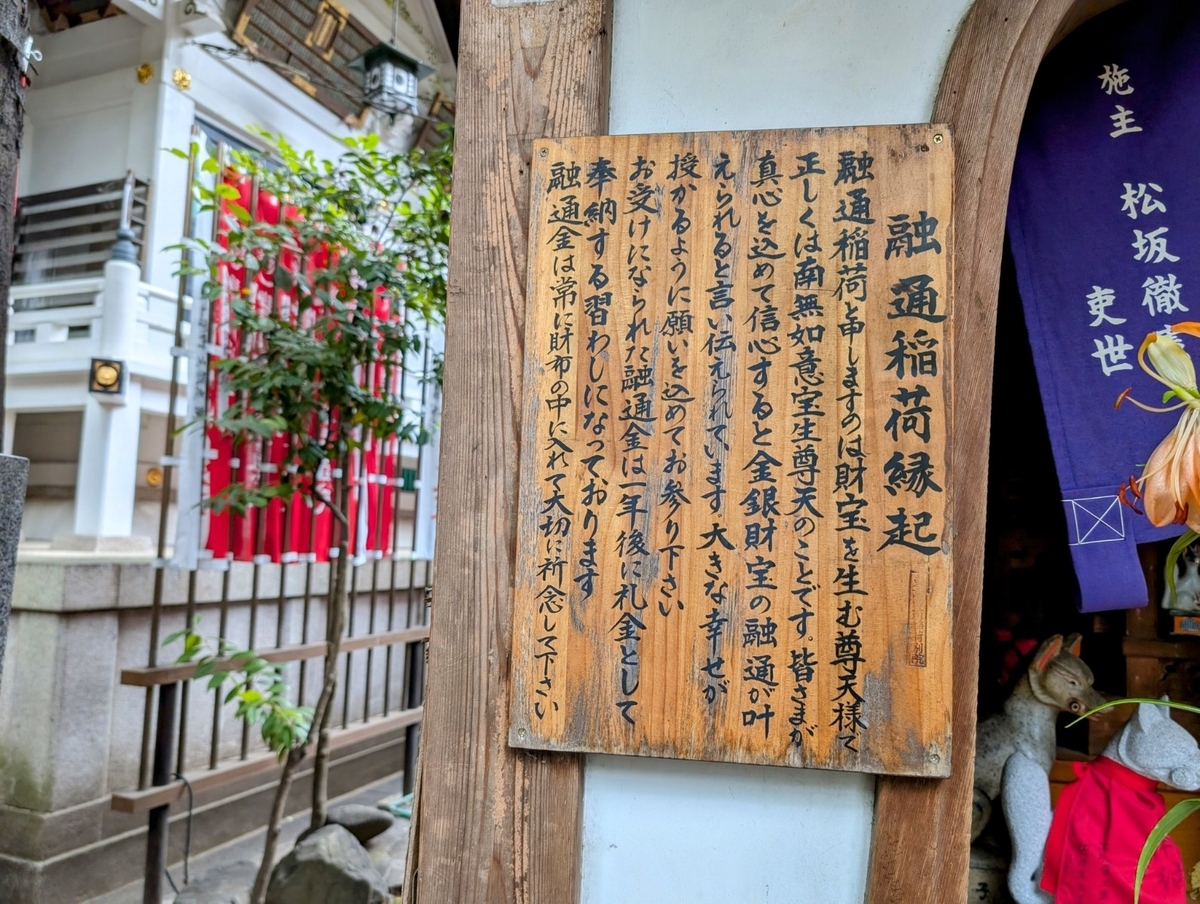 融通稲荷縁起
融通稲荷と申しますのは財宝を生む尊天様で
正しくは南無如意宝生尊天のことです。皆さまが
真心を込めて信心すると金銀財宝の融通が叶
えられると言い伝えられています。大きな幸せが
授かるように願いを込めてお参り下さい
お受けになられた融通金は一年後に礼金として
奉納する習わしになっております
融通金は常に財布の中に入れて大切に祈念して下さい
施主
松坂徹
吏世